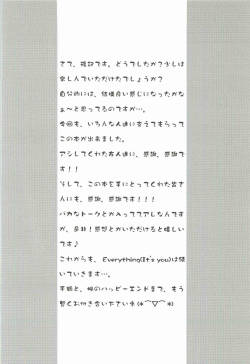 さて、後記です。どうでしたか？少しは
楽しんでいただけたでしょうか？
自分的には、結構良い感じになったかな
ぁ～と思ってるのですが…。
今回も、いろんな人達に支えてもらって
この本が出来ました。
アシしてくれた友人達に、感謝、感謝で
す！！
そして、この本を手にとってくれた皆さ
んにも、感謝、感謝です！！！
バカなトークとか入っててアレなんです
が、是非！感想とかいただけると嬉しい
です♪
これからも、Everything(It's you)は続
いていきます…。
千鶴と、 のハッピーエンドまで、もう
暫くお付き合い下さいネ(*⌒▽⌒*)